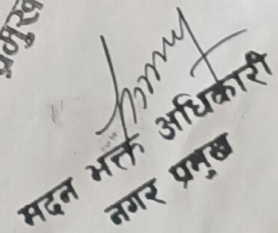 प्रमुख
मदन भक्त अधिकारी
नगर प्रमुख